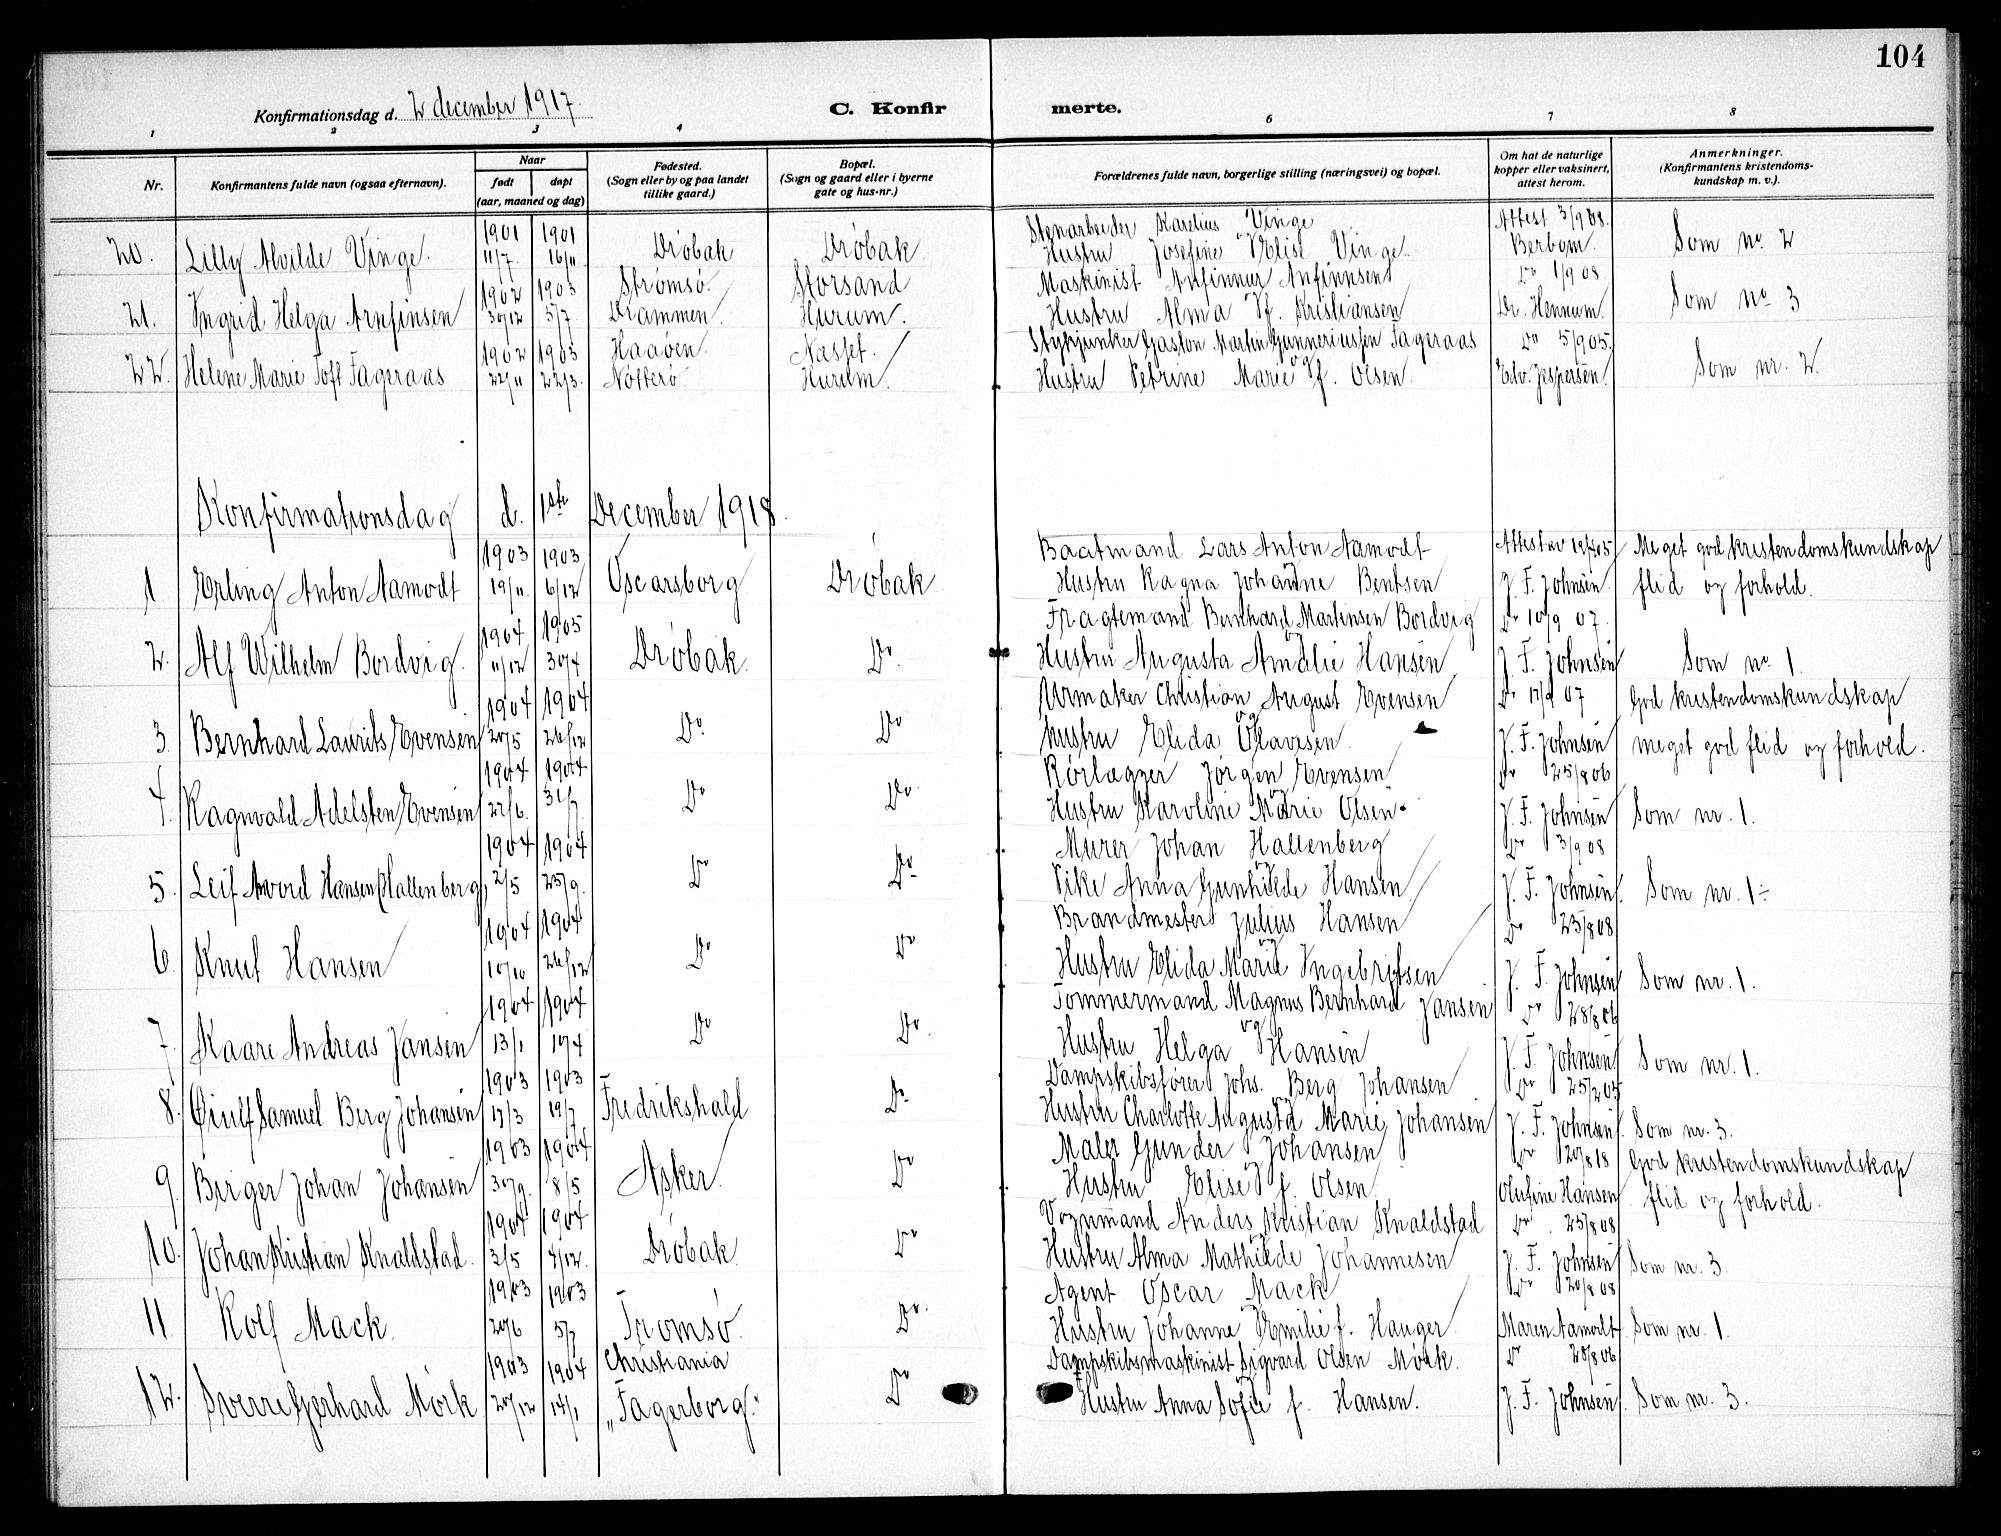 104
Konfirmationsdag d. 2 december 1917.
C. Konfirmerte.
1 2 3 4 6 7 8
Nr.
Konfirmantens fulde navn (ogsaa efternavn).
Naar
født døpt
(aar, maaned og dag)
Fødested.
(Sogn eller by og paa landet
tillike gaard.)
Bopæl.
(Sogn og gaard eller i byerne
gate og hus-nr.)
Forældrenes fulde navn, borgerlige stilling (næringsvei) og bopæl.
Om hat de naturlige
kopper eller vaksinert,
attest herom.
Anmerkninger.
(Konfirmantens kristendoms-
kundskap m. v.).
1901 1901 Stenarbeider Karelius Vinge Attest 3/9 08.
20. Lilly Alvilde Vinge. 11/7. 16/11 Drøbak Drøbak. Hustru Josefine Elise Vinge. Berbom. Som no. 2
1902 1903 Strømsø. Storsand Maskinist Arnfinnur Anfinnsen Do 1/9 08.
21. Ingrid Helga Arnfinsen 30/12 5/7. Drammen. Hurum. Hustru Alma f. Kristiansen Dr. Hennum. Som no 3
1902 1903 Haaøen. Næsset. Stykjunker Gaston Martin Gunneriussen Fageraas Do 5/9 05.
22. Helene Marie Toft Fageraas 22/11 22/3. Nøtterø. Hurum. Hustru Petrine Marie f. Olsen. Edv. Jespersen. Som nr. 2.
Konfirmationsdag d. 1ste December 1918.
1903 1903 Baatmand Lars Anton Aamodt Attest av 12/4 05 Meget god kristendomskundskap
1 Erling Anton Aamodt 19/11. 6/12 Oscarsborg Drøbak Hustru Ragna Johanne Bentsen J. F. Johnsen. flid og forhold.
1904 1905 Fragtemand Bernhard Martinsen Bordvig Do 10/9 07.
2. Alf Wilhelm Bordvig. 11/12 30/4 Drøbak. Do. Hustru Augusta Amalie Hansen J. F. Johnsen Som no 1.
1904 1904 Urmaker Christian August Evensen Do 17/9 07 God kristendomskundskap
3. Bernhard Laurits Evensen 20/5 26/12 Do. Do Hustru Elida Olavesen. J. F. Johnsen meget god flid og forhold.
1904 1904 Rørlægger Jørgen Evensen Do 25/8 06
4. Ragnvald Adelsten Evensen 22/6. 31/7 Do Do Hustru Karoline Marie Olsen. J. F. Johnsen Som nr. 1.
1904 1904 Murer Johan Hallenberg Do 3/9 08
5. Leif Hansen (Hallenberg) 2/5 25/9. Do Do Pike Anna Gunhilde Hansen J. F. Johnsen. Som nr. 1÷
1904 1904 Brandmester Julius Hansen Do 25/8 08
6. Knut Hansen 10/10 26/12 Do Do Hustru Elida Marie Ingebritsen J. F. Johnsen Som nr. 1.
1904 1904 Tømmermand Magnus Bernhard Jansen Do 28/8 06
7. Kaare Andreas Jansen 13/1 10/4 Do Do. Hustru Helga Hansen J. F. Johnsen Som nr. 1.
1903 1903 Dampskibsfører Johs. Berg Johansen Do 25/2 05
8. Øiulf Samuel Berg Johansen 17/3 19/7 Fredrikshald Do Hustru Charlotte Augusta Marie Johansen J. F. Johnsen. Som nr. 3.
1903 1904 Maler Gunder Johansen Do 20/8 18 God kristendomskundskap
9. Birger Johan Johansen 30/9. 8/5 Asker. Do Hustru Elise f. Olsen Olufine Hansen flid og forhold.
1904 1904 Vognmand Anders Kristian Knaldstad Do. 25/8 08
10. Johan Kristian Knaldstad. 3/5 4/12. Drøbak. Do Hustru Alma Mathilde Johannesen J. F. Johnsen Som nr. 3.
1903 1903 Agent Oscar Mack Do 20/8 08
11 Rolf Mack. 20/6 5/7 Tromsø. Do. Hustru Johanne Emilie f. Hauger. Maren Aamodt. Som nr. 1.
1903 1904 Christiania Dampskibsmaskinist Sigvard Olsen Mørk. Do 28/8 06
12. Sverre Gerhard Mørk 20/12 14/1 „Fagerborg." Do Hustru Anna Sofie f. Hansen. J. F. Johnsen. Som nr. 3.